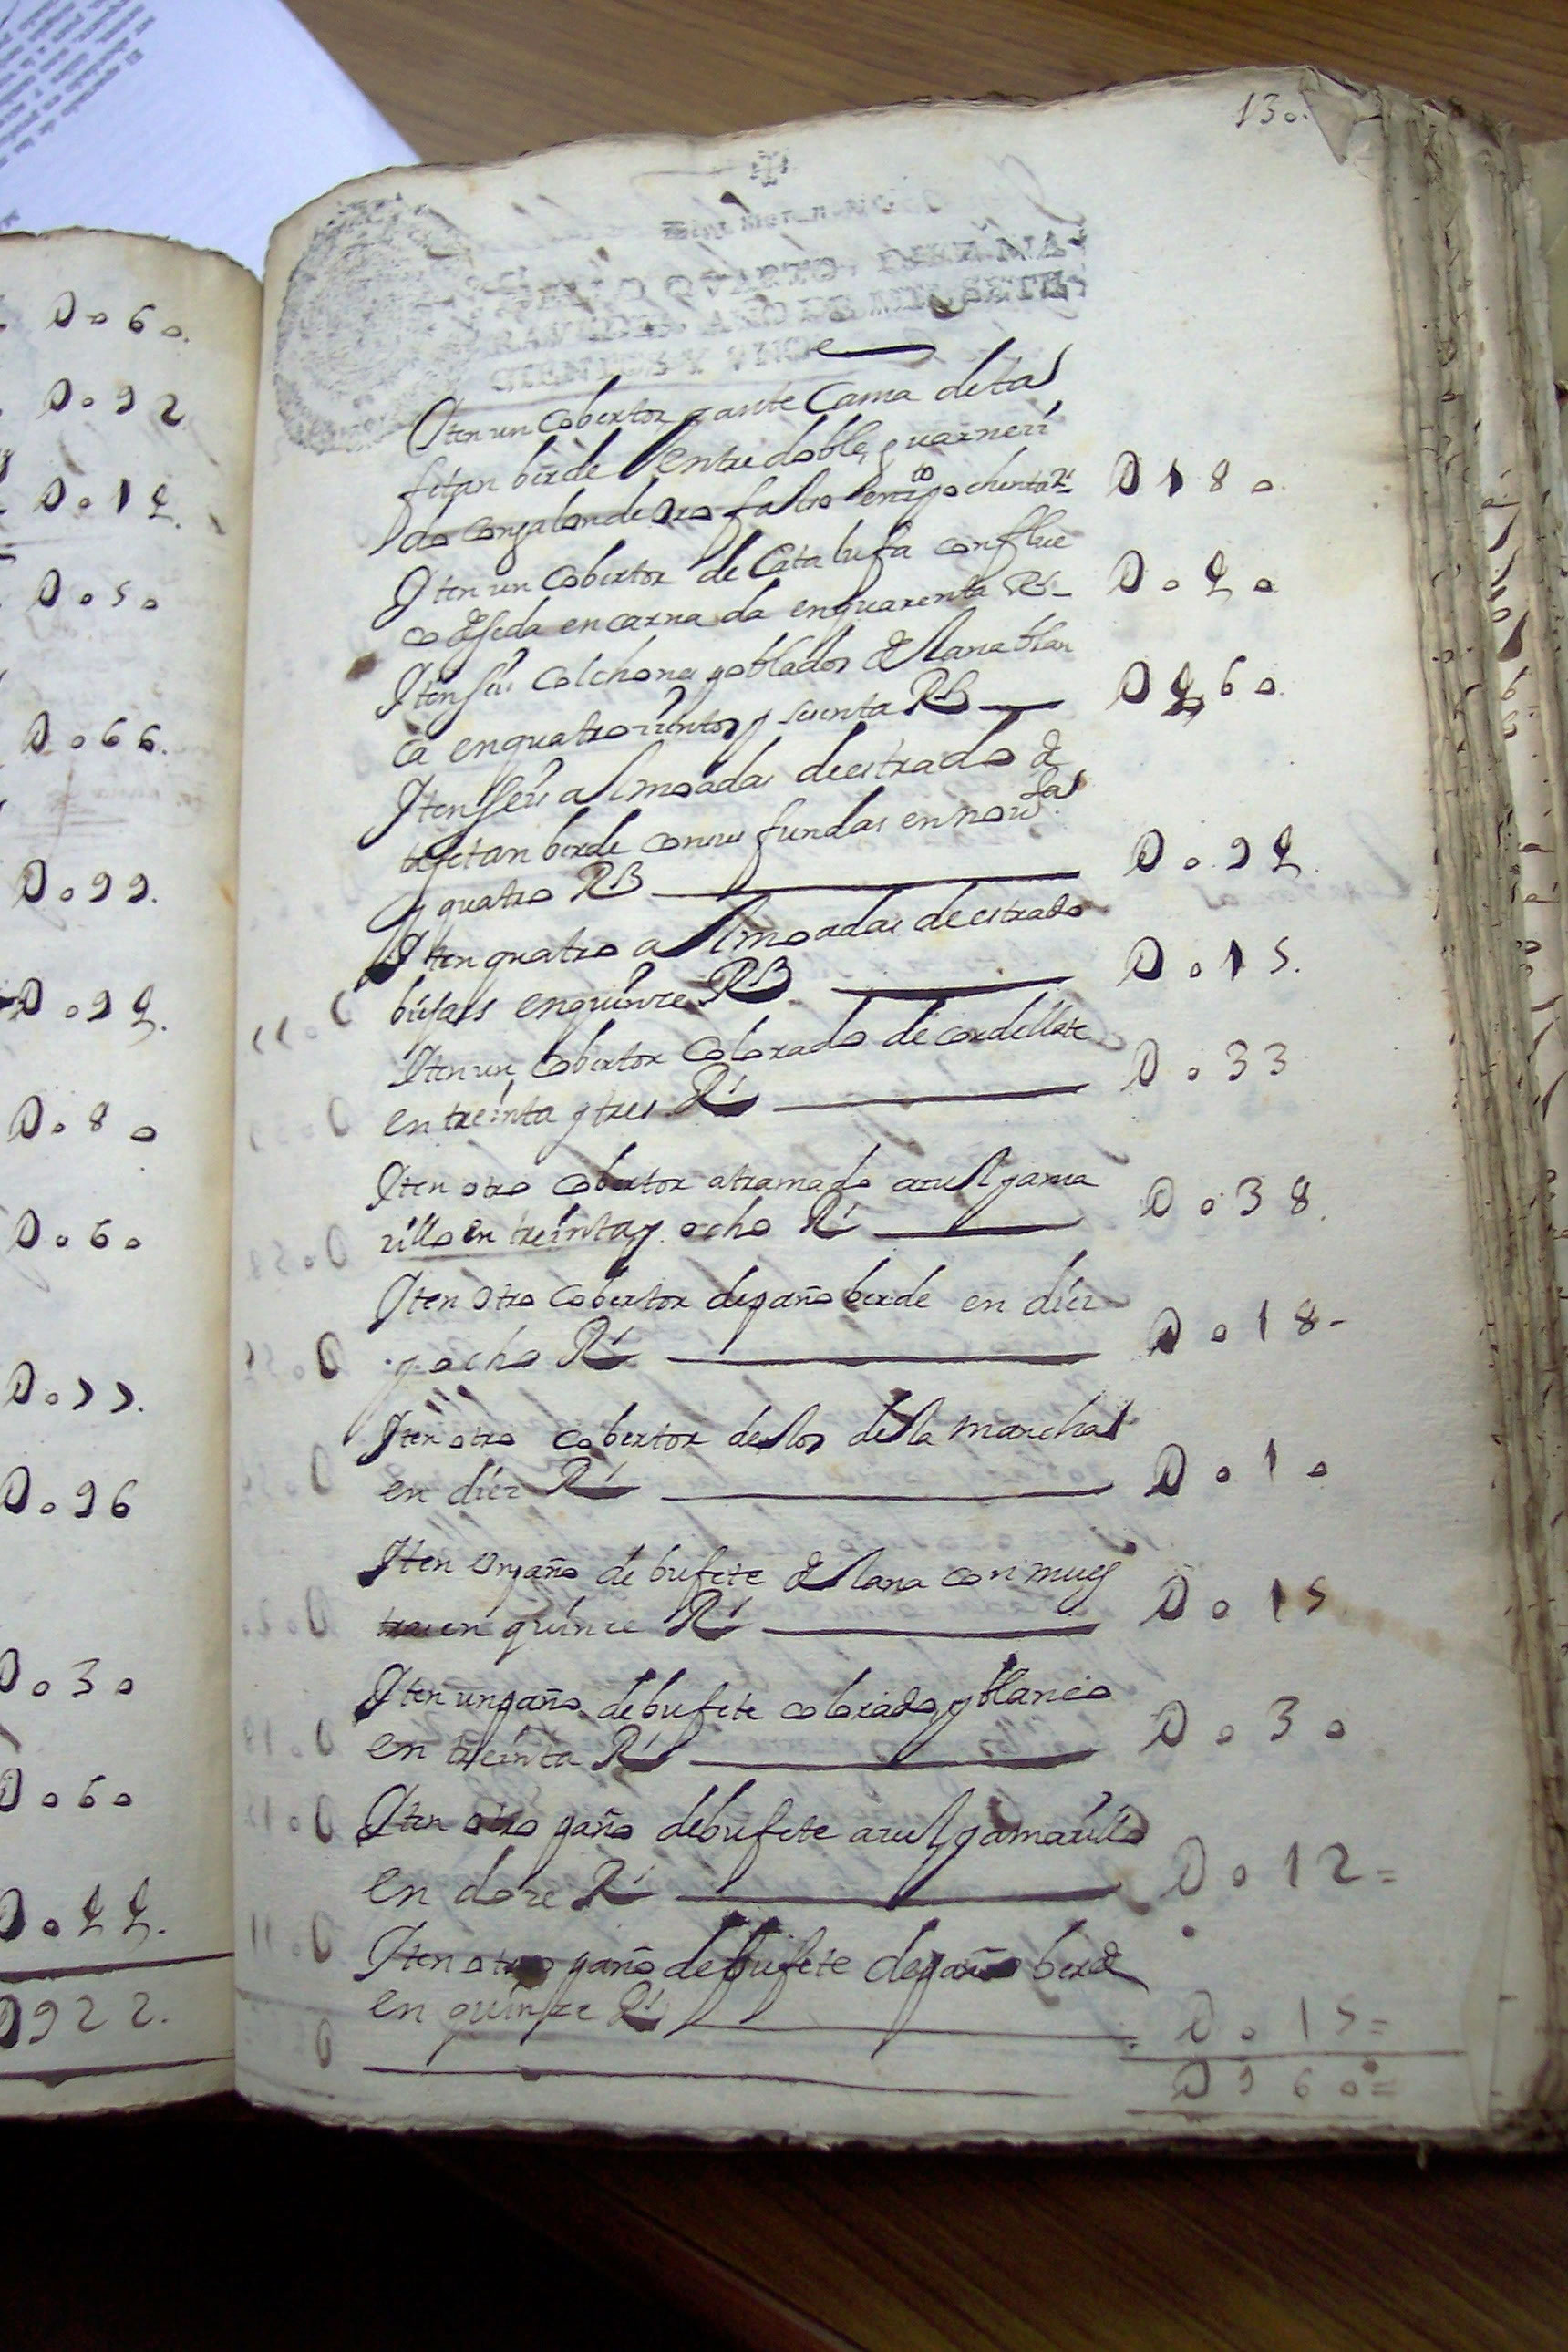 D o 6 o.
D o 9 2
D o 1 4.
D o 5 o
D o 6 6.
D o 9 9.
D o 9 4.
D o 8 o
D o 6 o
D o 7 7.
D o 9 6
D o 3 o
D o 6 o
D o 4 4.
D 9 2 2.
130.
SELLO QVARTO, DIEZ MA
RAVEDIS, AÑO DE MIL SETE
CIENTOS Y VNO
Iten un Cobertor y ante Cama de taf
fetan berde entredoble, guarneci
do con galon de oro falso en zto y ochenta Rs D 1 8 o
Iten un Cobertor de Catalufa con flue
co de seda encarnada en quarenta Rs D o 4 o
Iten seis Colchones poblados de lana blan
ca en quatrocientos y sesenta Rs D 4 6 o
Iten seis almoadas de estrado de
tafetan berde con sus fundas en nov.ta
y quatro Rs D o 9 4.
Iten quatro almoadas de estrado
en quince Rs D o 1 5.
Iten un cobertor colorado de cordellate
en treinta y tres Rs D o 3 3
Iten otro cobertor atramado azul y ama
rillo en treinta y ocho Rs D o 3 8.
Iten otro cobertor de paño berde en diez
y ocho Rs D o 1 8 -
Iten otro cobertor de los de la mancha
en diez Rs D o 1 o
Iten un paño de bufete de lana con mues
tras en quince Rs D o 1 5
Iten un paño de bufete colorado, y blanco
en treinta Rs D o 3 o
Iten otro paño de bufete azul y amarillo
en doze Rs D o 1 2 =
Iten otro paño de bufete de paño berde
en quinze Rs D o 1 5 =
D 9 6 o =